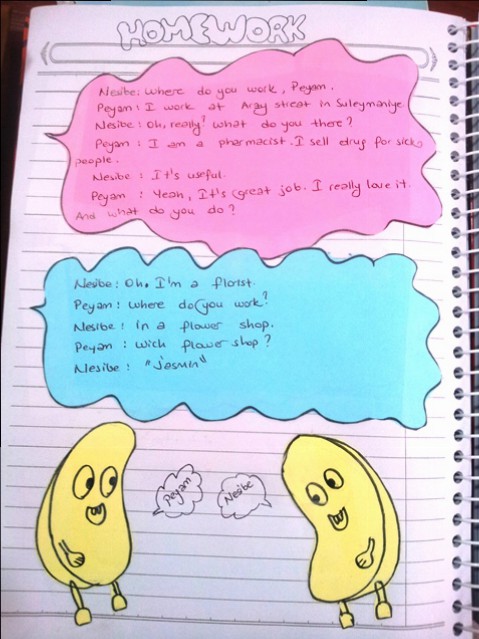 HOMEWORK
Nesibe: Where do you work, Peyam.
Peyam: I work at Aray streat in Suleymaniye
Nesibe: Oh, really? what do you there?
Peyam: I am a pharmacist. I sell drug for sick
people.
Nesibe: It's useful.
Peyam: Yeah, It's great job. I really love it.
And what do you do?
Nesibe: Oh, I'm a florist.
Peyam: where do you work?
Nesibe: in a flower shop.
Peyam: wich flower shop?
Nesibe: "jasmin"
Peyam
Nesibe